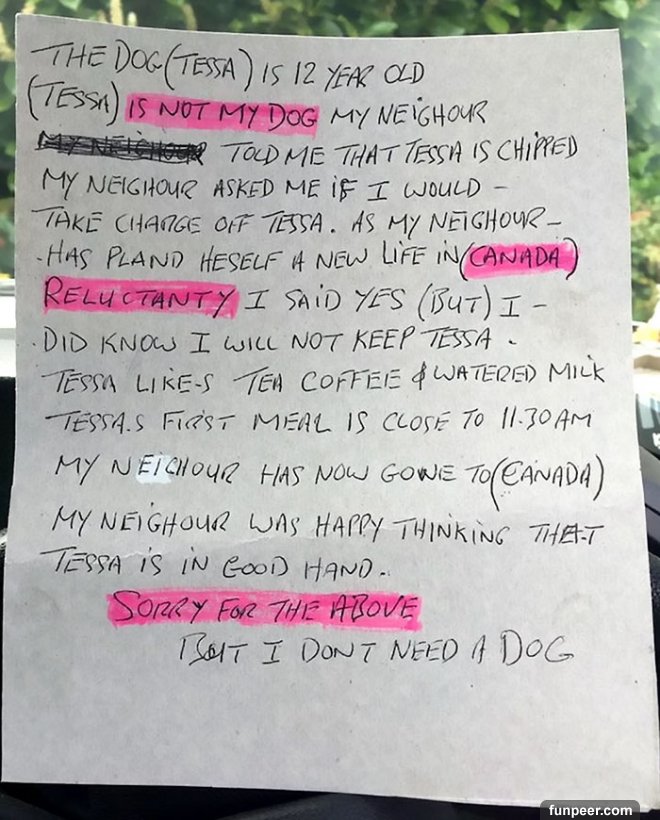 THE DOG (TESSA) IS 12 YEAR OLD
(TESSA) IS NOT MY DOG MY NEIGHOUR
MY NEIGHOUR TOLD ME THAT TESSA IS CHIPPED
MY NEIGHOUR ASKED ME IF I WOULD -
TAKE CHARGE OFF TESSA. AS MY NEIGHOUR -
- HAS PLAND HESELF A NEW LIFE IN (CANADA)
RELUCTANTY I SAID YES (BUT) I -
- DID KNOW I WILL NOT KEEP TESSA.
TESSA LIKE-S TEA COFFEE & WATERED MILK
TESSA.S FIRST MEAL IS CLOSE TO 11.30 AM
MY NEIGHOUR HAS NOW GONE TO (CANADA)
MY NEIGHOUR WAS HAPPY THINKING THAT
TESSA IS IN GOOD HAND.
SORRY FOR THE ABOVE
BUT I DONT NEED A DOG
funpeer.com